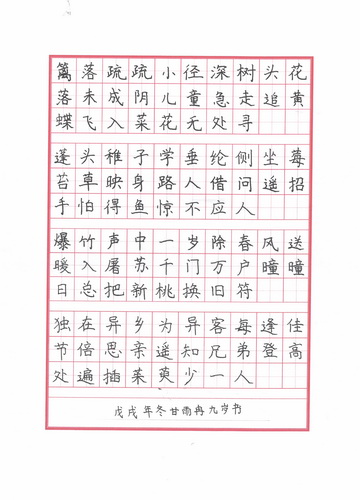 篱落疏疏小径深树头花
落未成阴儿童急走追黄
蝶飞入菜花无处寻
蓬头稚子学垂纶侧坐莓
苔草映身路人借问遥招
手怕得鱼惊不应人
爆竹声中一岁除春风送
暖入屠苏千门万户曈曈
日总把新桃换旧符
独在异乡为异客每逢佳
节倍思亲遥知兄弟登高
处遍插茱萸少一人
戊戌年冬甘雨冉九岁书